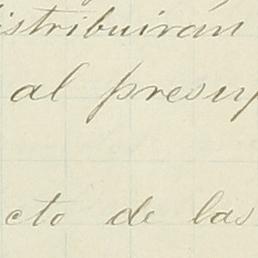 istribuirán
al presup
cto de las